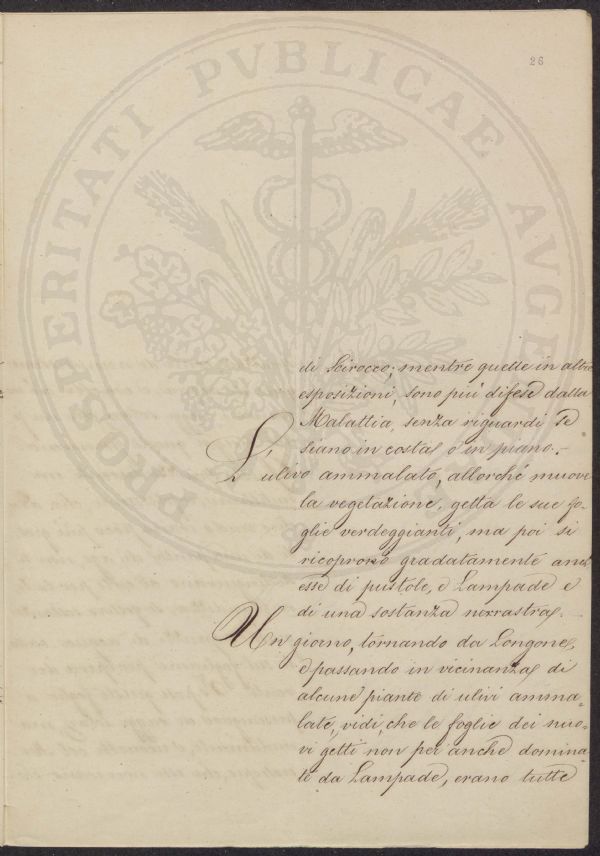 26
PROSPERITATI PVBLICAE AVGE
di Scirocco; mentre quelle in altre
esposizioni, sono più difese dalla
Malattia, senza riguardi se
siano in costa, o in piano.-
L'ulivo ammalato, allorché muove
la vegetazione, getta le sue fo-
glie verdeggianti, ma poi si
ricoprono gradatamente anch'
esse di pustole, e Lampade e
di una sostanza nerrastra.
Un giorno, tornando da Longone,
e passando in vicinanza di
alcune piante di ulivi amma-
late, vidi, che le foglie dei nuo-
vi getti non per anche domina-
te da Lampade, erano tutte